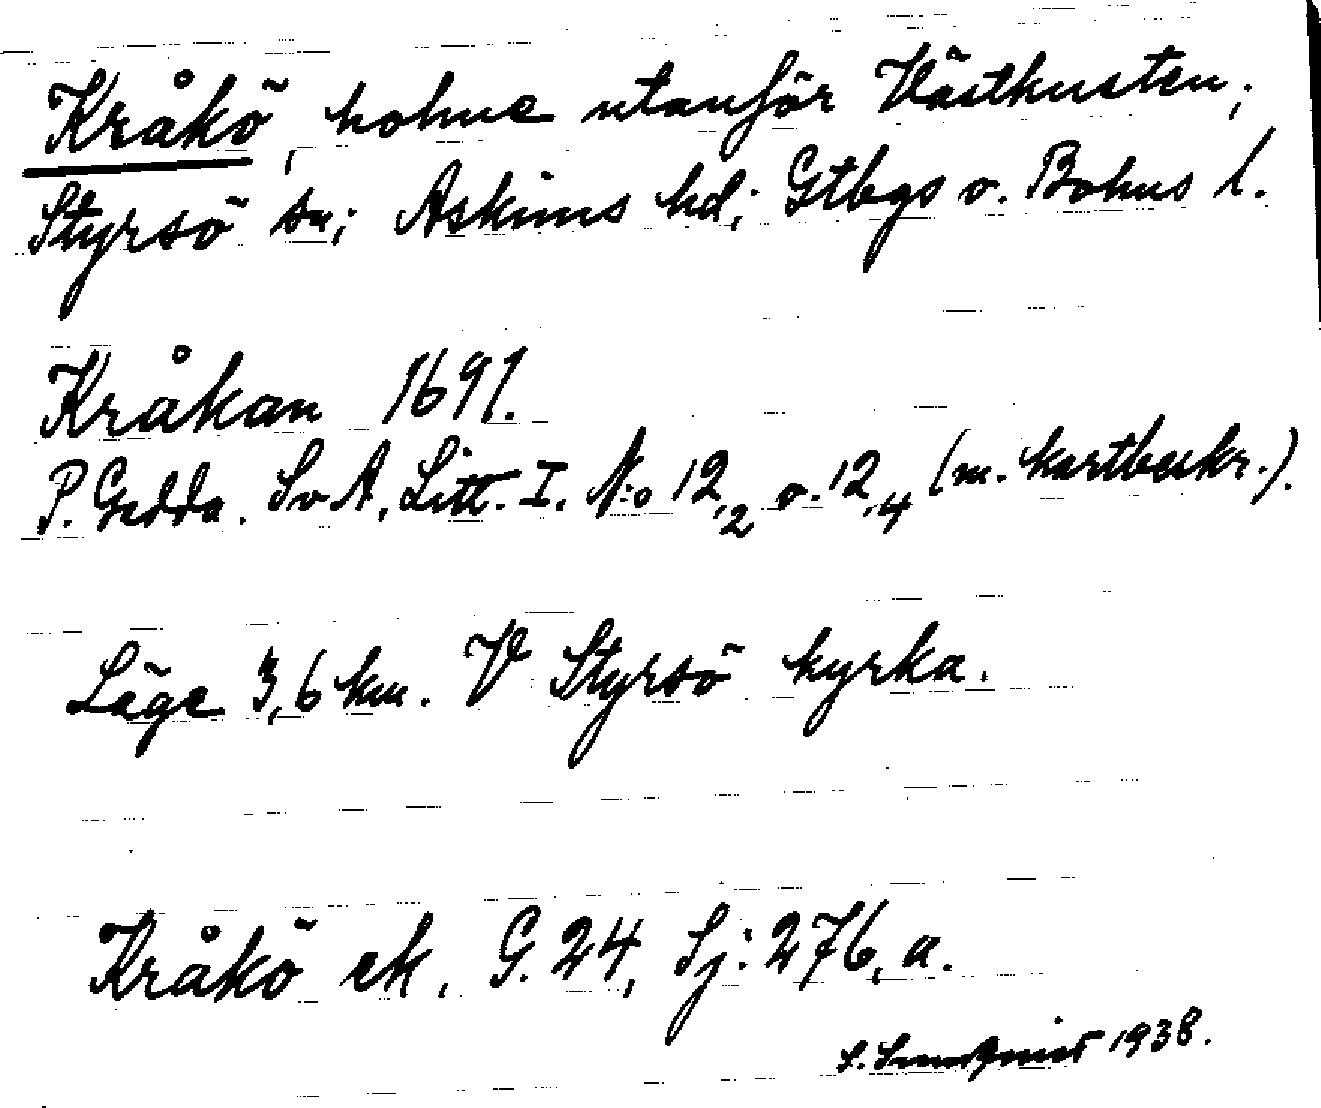 Kråkö, holme utanför Västkusten;
Styrsö sn; Askims hd; Gtbgs o. Bohus l.
Kråkan 1691.
P. Gedda. Sv A. Litt. I. N:o 12,2 o. 12,4 (m. kartbeskr.).
Läge 3,6 km. V Styrsö kyrka.
Kråkö ek. G. 24, Sj: 276, a.
S. 1938.